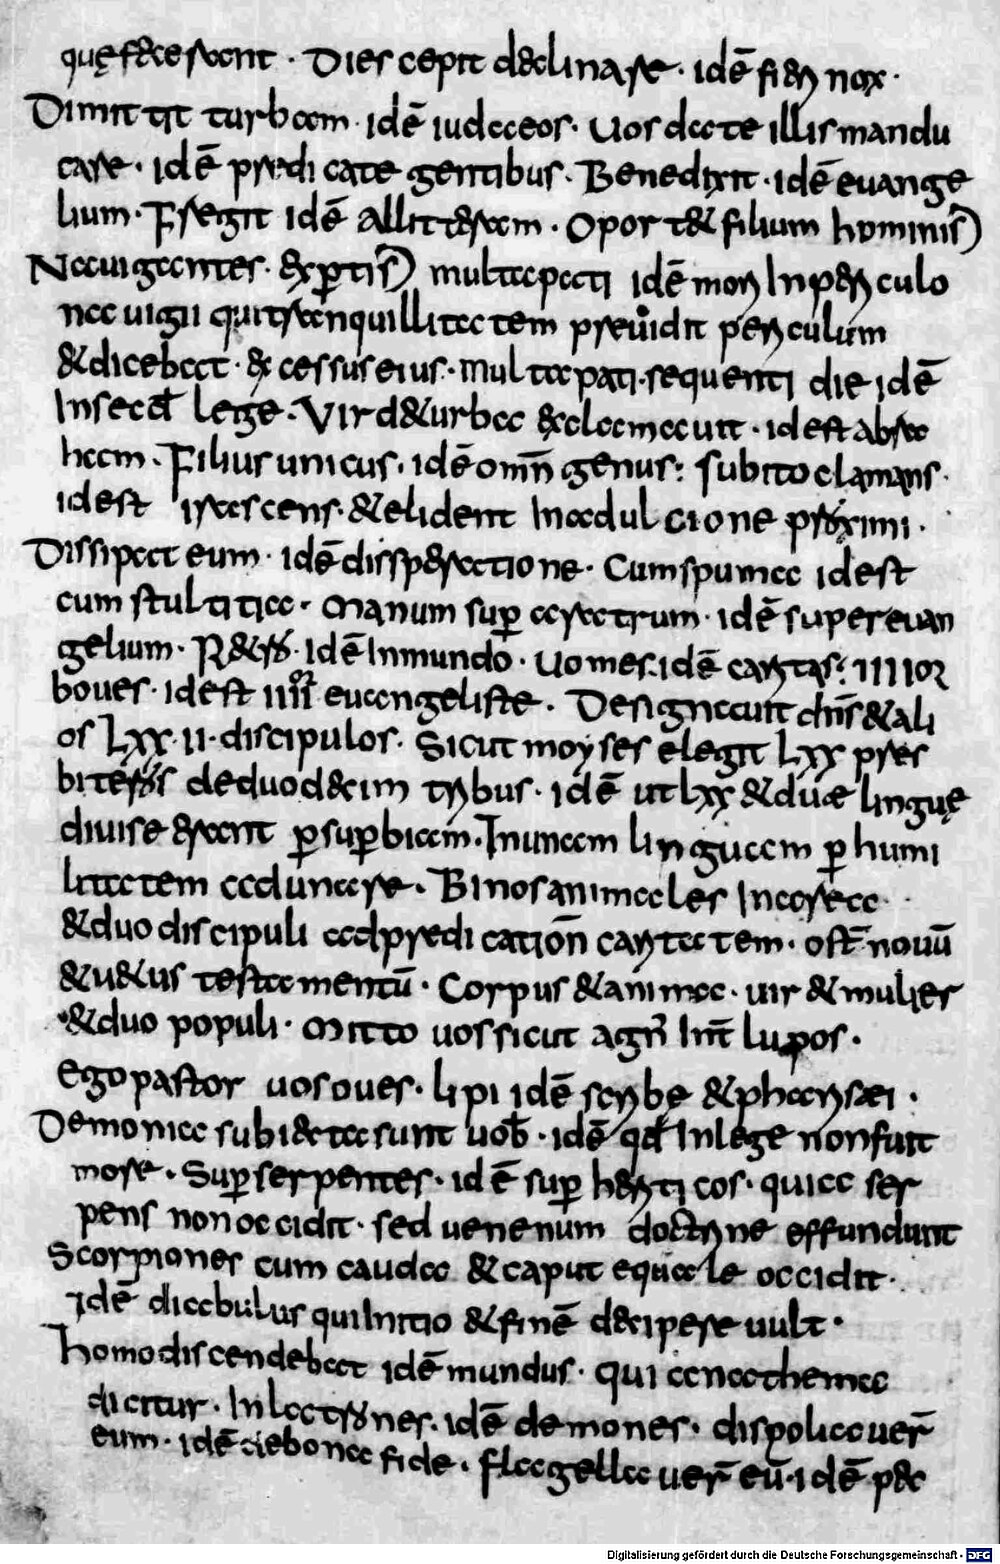 quęfecerunt · Dies cepit declinare · idē fieri nox ·
Dimittit turbam · idē iudaeos · Uos date illis mandu
care · idē predicate gentibus · Benedixit · idē euange
lium · Fregit idē alliteram · Oportet filium hominis
Nauigantes · expertis multa pati idē mori In periculo
nauigii qui tranquillitatem preuidit periculum
& dicebat · excessus eius · multa pati · sequenti die idē
In secd lege · Vir de urbe exclamauit · idest abra
ham · Filius unicus · idē omn genus : subito clamans ·
idest irascens · & elident In adulcione proximi ·
Dissipat eum · idē dissperactione · Cum spuma idest
cum stultitia · Manum sup aratrum · idē super euan
gelium · R&ro · idē In mundo · Uomes · idē caritas : IIII or
boues · idest IIII or euangeliste · Designauit dns & ali
os LXX · II · discipulos · Sicut moyses elegit LXX pres
biteros de duodecim tribus · idē ut LXX & duæ linguę
diuise erant p supbiam · In unam linguam p humi
litatem adunare · Binos animales In arca ·
& duo discipuli ad predicationem caritatem · ost nouū
& uetus testamentū · Corpus & anima · uir & mulier
& duo populi · Mitto uos sicut agn Int lupos ·
Ego pastor uos oues · lupi idē scribę & pharisæi ·
Demonia subiecta sunt uob · idē qd In lege non fuit
more · Sup serpentes · idē sup hereticos · quia ser
pens non occidit · sed uenenum doctrine effundunt
Scorpiones cum cauda & caput equale occidit ·
idē diabulus qui Initio & finē decipere uult ·
Homo discendebat idē mundus · qui anathema
dicitur · In latrones · idē demones · dispoliauer
eum · idē de bona fide · flagellauer eū · idē pec